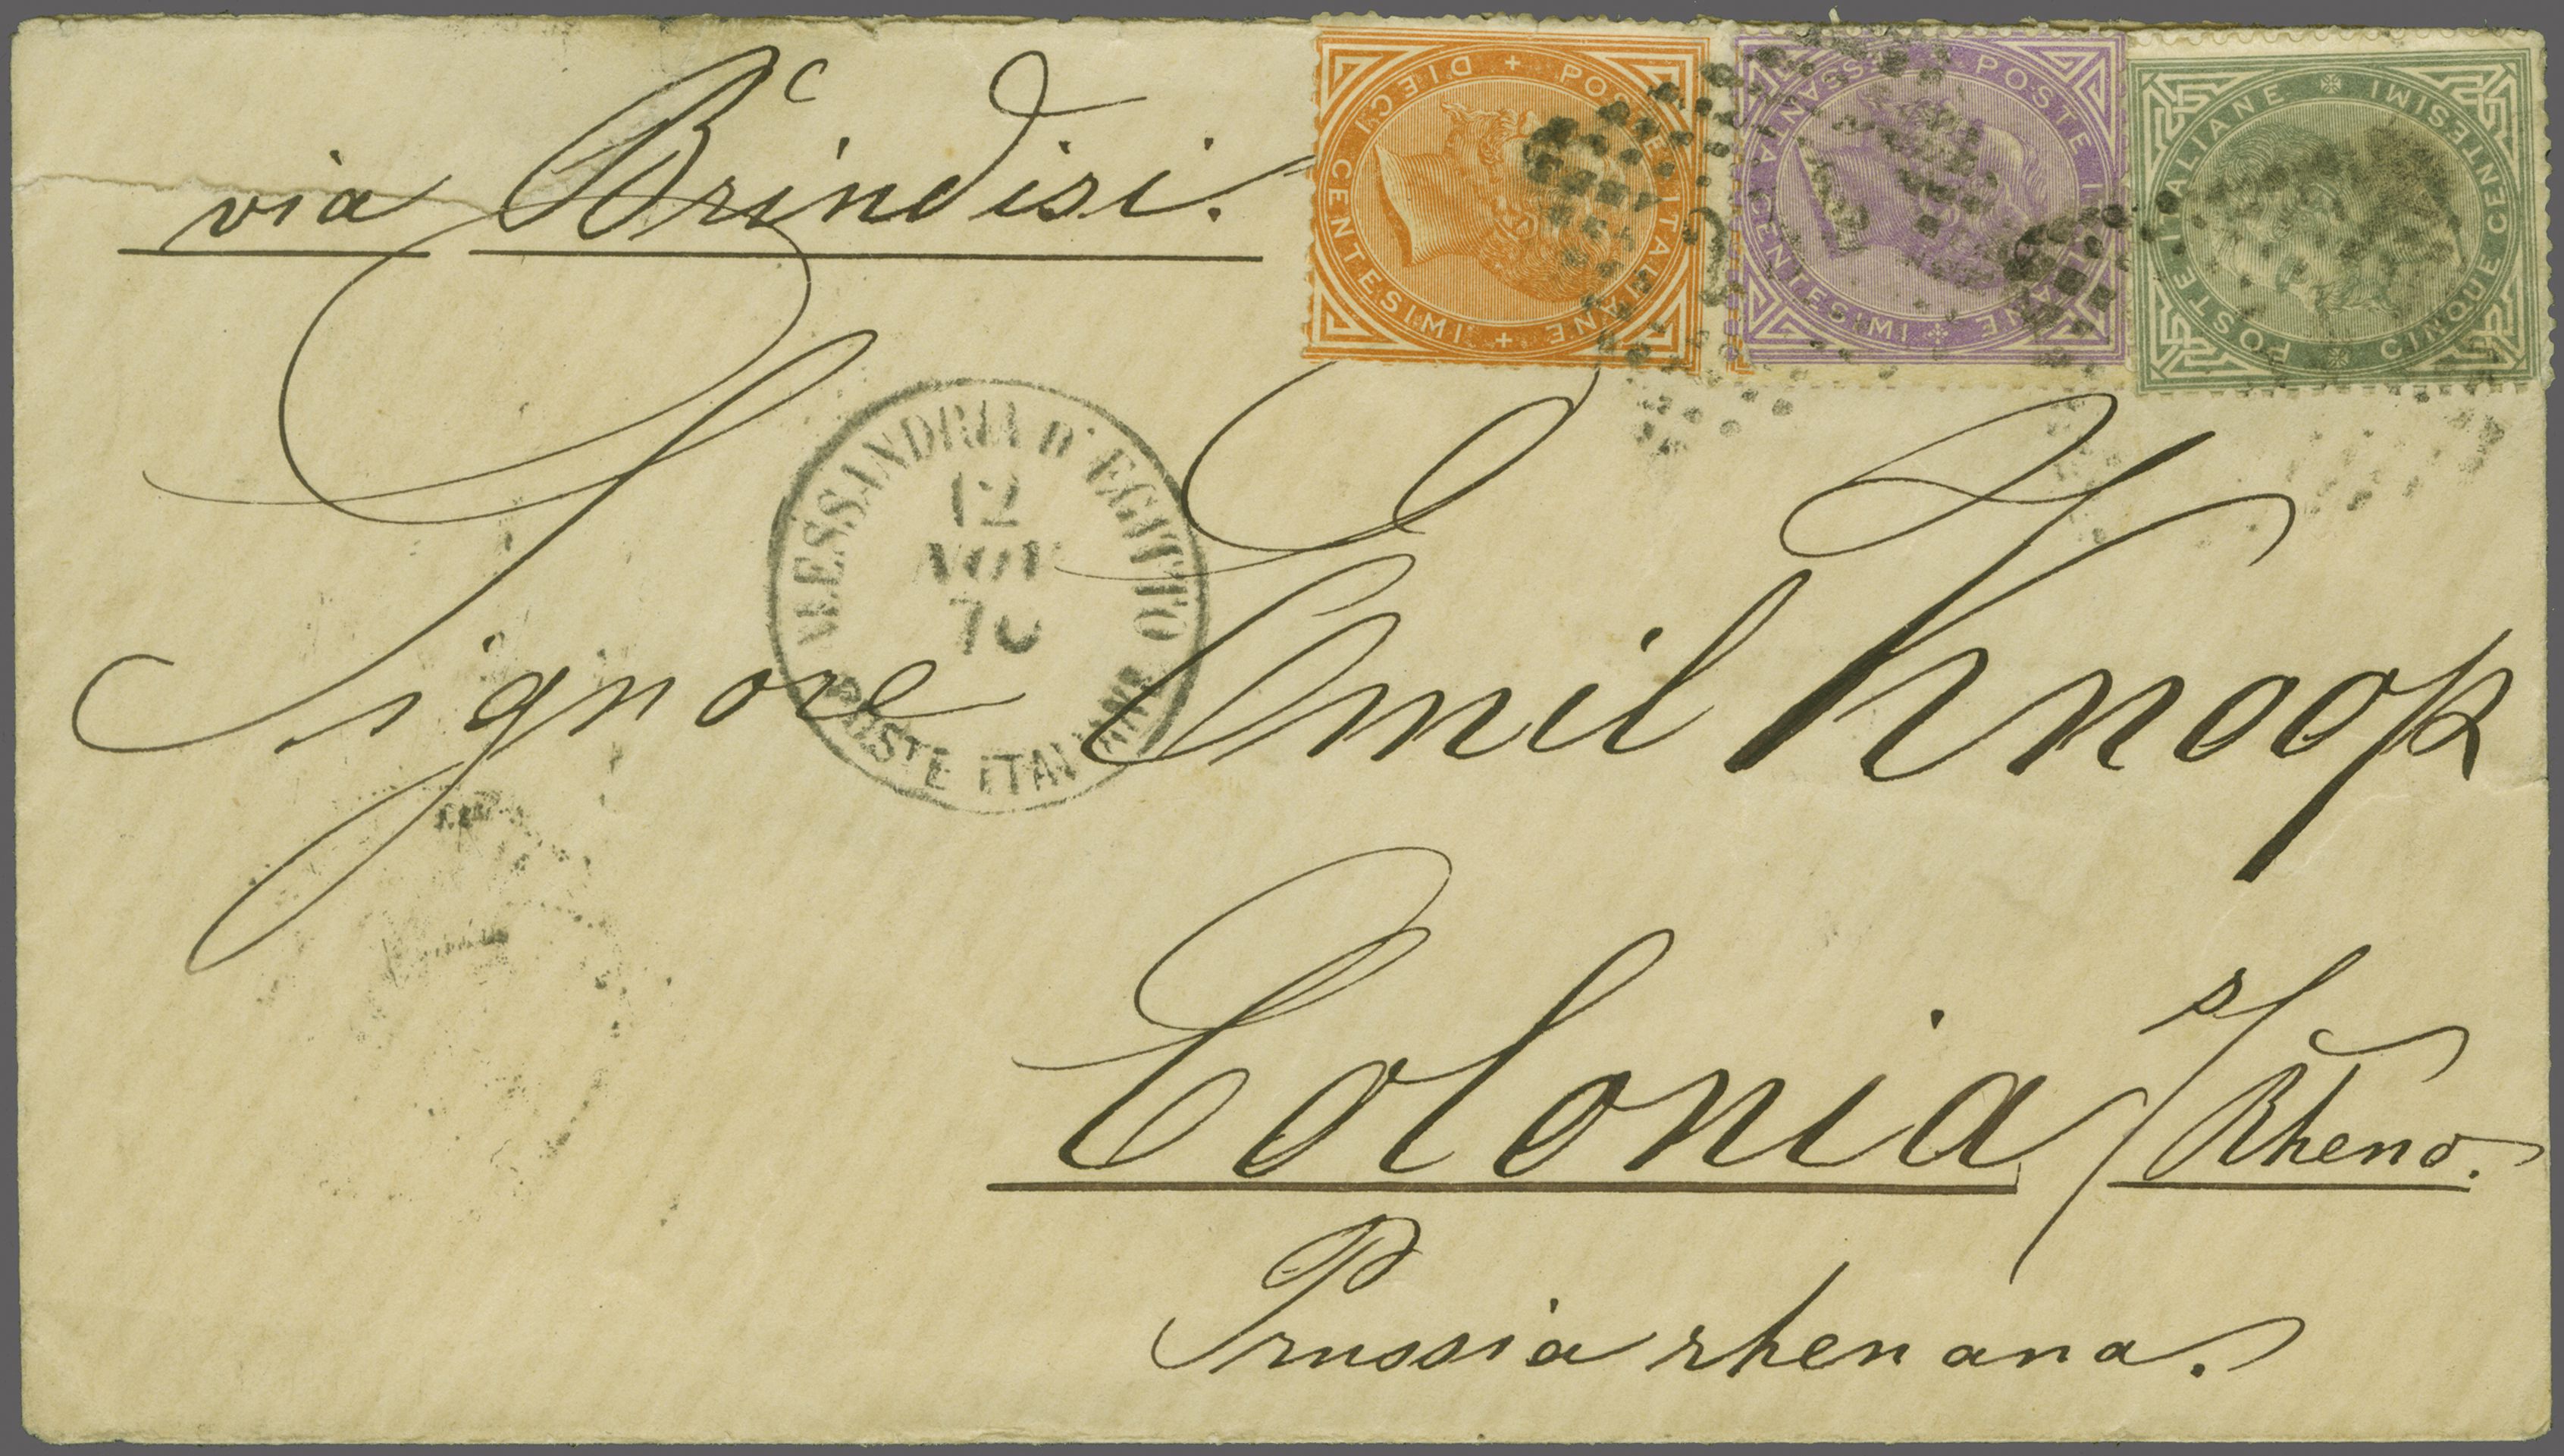 via Brindisi.
POSTE ITALIANE + DIECI CENTESIMI +
POSTE ITALIANE SESSANTA CENTESIMI
POSTE ITALIANE CINQUE CENTESIMI
ALESSANDRIA D'EGITTO
12
NOV
70
POSTE ITALIANE
Signore Emil Knoop
Colonia s/Rheno.
Prussia rhenana.